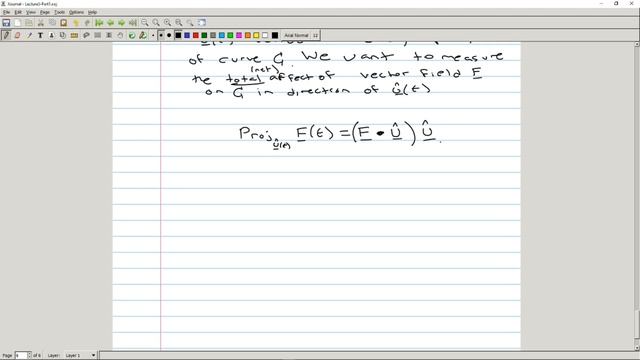 Jarnal - Lecture3-Part1.xoj
File Edit View Page Tools Options Help
Arial Normal 12
of curve G. We want to measure
(net)
the total affect of vector field F
on G in direction of û(t)
Proj û(t) F(t) = (F • û) û.
Page 6 of 6 Layer: Layer 1